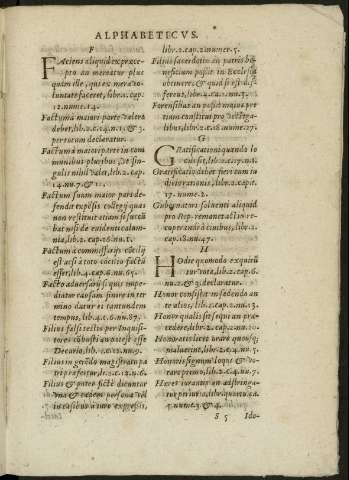 ALPHABETICVS.
F
FAciens aliquid ex præce-
pto an mereatur plus
quàm ille, qui ex mera vo-
luntate faceret, lib. 2. cap.
12. nume. 14.
Factum à maiori parte valere
debet, lib. 2. c. 14. n. 1. & 3.
per totum declaratur.
Factum à maiori parte in com
munibus pluribus, vt sin-
gulis nihil valet, lib. 2. cap.
14. nu. 7. & 11.
Factum suum maior pars de-
fendere potest collegij quæ
non restitutationem si succũ
bat nisi de euidenti calum-
nia, lib. 2. cap. 26. nu. 1.
Factum à commissarijs collegij
est ac si à toto collegio factũ
esset, lib. 4. cap. 6. nu. 65.
Facto aduersarij si quis impe-
diatur causam finire in ter-
mino datur ei tantundem
tempus, lib. 4. c. 6. nu. 87.
Filius falsi testis per Inquisi-
tores cõbusti an potest esse
Decurio, lib. 2. c. 12. nu. 9.
Filius in gerẽdo magistratu pa
tri præfertur, lib. 2. c. 12. n. 6.
Filius & pater fictè dicuntur
vna & eadem persona vel
in casibus à iure expressis,
lib. 2. cap. 2. numer. 5.
Filius sacerdotis an patris be-
neficium possit in Ecclesia
obtinere, & quid si est dif-
ferens, lib. 4. c. 2. nu. 3.
Forensibus an possit maius pre
tium constitui pro vectiga-
libus, lib. 2. c. 18. nume. 27.
G
GRatificatio quando lo
cũ sit, lib. 2. c. 17. n. 1.
Gratificatio debet fieri cum in
diuisorationis, lib. 2. cap.
17. nume. 2.
Gubernatori soluenti aliquid
pro Rep. remanet actio re-
cuperandi à ciuibus, lib. 2.
cap. 18. nu. 47.
H
HOdie quomodo exquirũ
tur vota, lib. 2. cap. 6.
nu. 2. & 3. declaratur.
Honor consistit in sedendo an
te alios, lib. 2. cap. 2. nu. 13.
Honor qualis sit sequi an præ-
cedere, lib. 2. cap. 2. nu. 13.
Honoratos licet vrare quousq;
conualuerint, lib. 2. c. 4. nu. 9.
Honoris signum longæ & va-
rium, lib. 2. cap. 4. nu. 7.
Hæres iurantis an adstringa-
tur periurio, lib. 4. quinto ca.
5. nume. 3. & 4.
S 5
Ido-